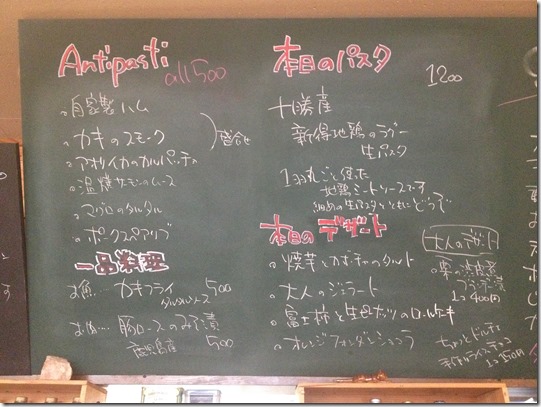 Antipasti
all 500
自家製ハム
カキのスモーク
盛合せ
アオリイカのカルパッチョ
温燻サーモンのムース
マグロのタルタル
ポークスペアリブ
一品料理
お魚… カキフライ 500
タルタルソース
お肉… 豚ロースのみそ漬
鹿児島産 500
本日のパスタ
1200
十勝産
新得地鶏のラグー
生パスタ
1羽丸ごと使った
地鶏ミートソースです
細めの生パスタとともにどうぞ
本日のデザート
焼芋とカボチャのタルト
大人のジェラート
富士柿と生母ナッツのロールケーキ
オレンジフォンダンショコラ
大人のデザート
栗の渋皮煮
ブランデー漬
1コ 400円
ちょっとドルチェ
1コ 150円